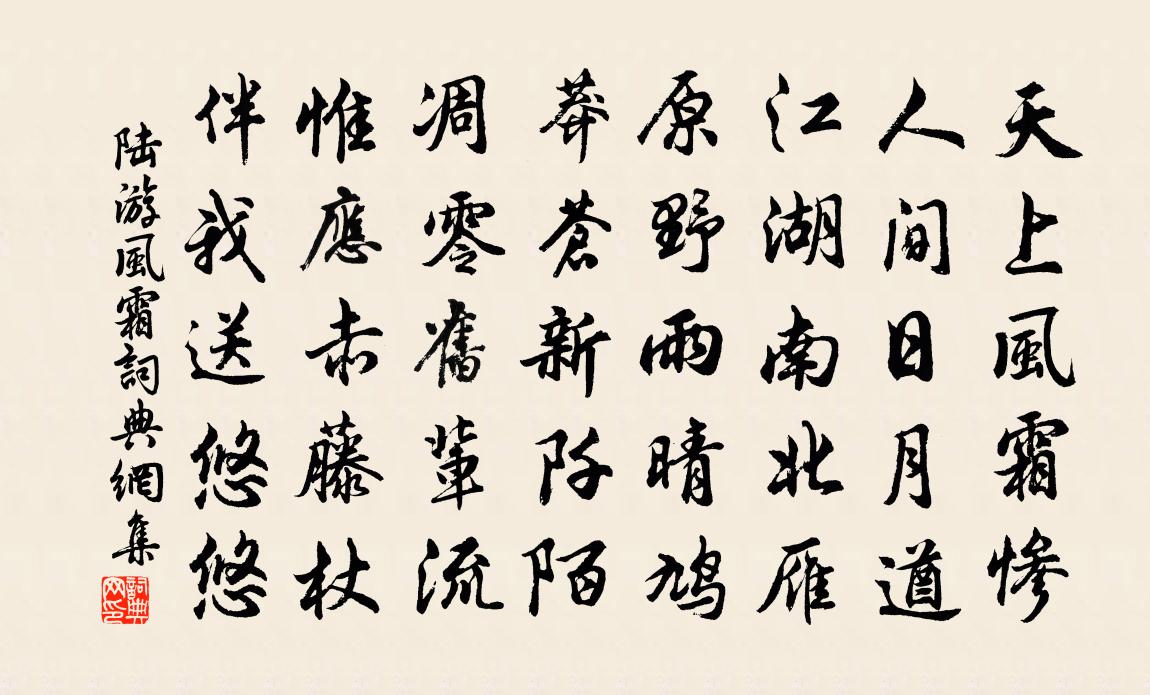 天上風霜慘
人間日月遒
江湖南北雁
原野雨晴鳩
莽蒼新阡陌
凋零舊輩流
惟應赤藤杖
伴我送悠悠
陆游風霜詞典網集
詞典